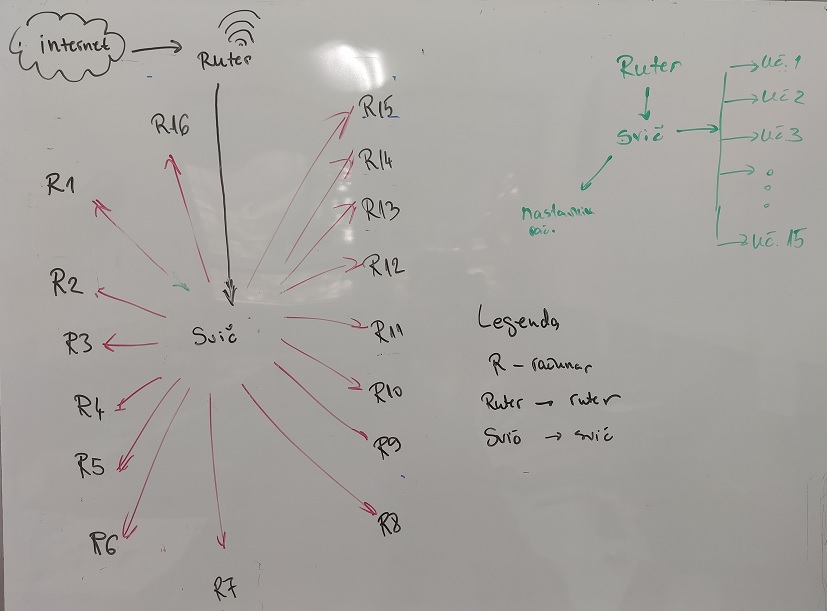 internet
Ruter
R16
R1
R2
R3
R4
R5
R6
R7
R8
R9
R10
R11
R12
R13
R14
R15
Svič
Ruter
Svič
Nastavnik
rač.
Uč. 1
Uč 2
Uč 3
Uč. 15
Legenda
R - računar
Ruter → ruter
Svič → svič